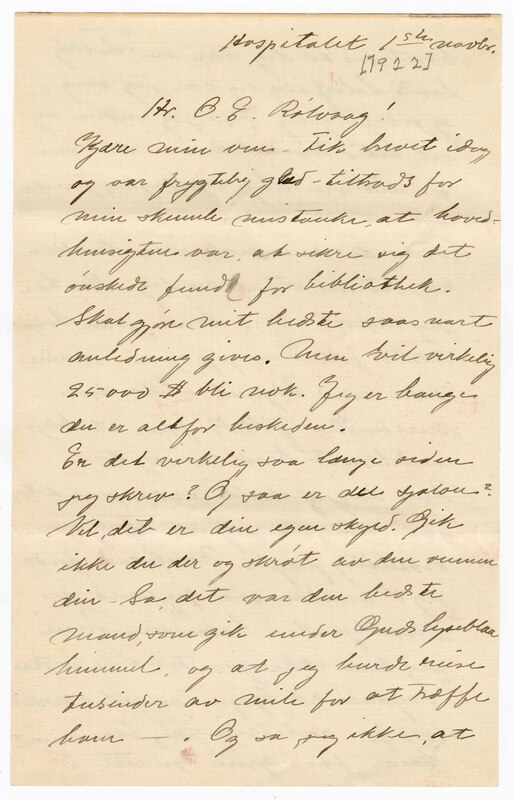 Hospitalet 1ste novbr.
[1922]
Hr. O. E. Rölvaag!
Kjære min ven - Fik brevet idag
og var frygtelig glad - tiltrods for
min skumle mistanke, at hoved-
hensigten var, at sikre sig det
ønskede fund for bibliothek.
Skal gjøre mit bedste saasnart
anledning gives. Men vil virkelig
25000 $ bli nok. Jeg er bange
du er altfor beskeden.
Er det virkelig saa længe siden
jeg skrev? Og saa er du sjalou?
Vel, det er din egen skyld. Gik
ikke du der og skrøt av den vennen
din - Sa, det var den bedste
mand, som gik under Guds lyseblaa
himmel, og at jeg burde reise
tusinder av mile for at træffe
ham - . Og sa jeg ikke, at